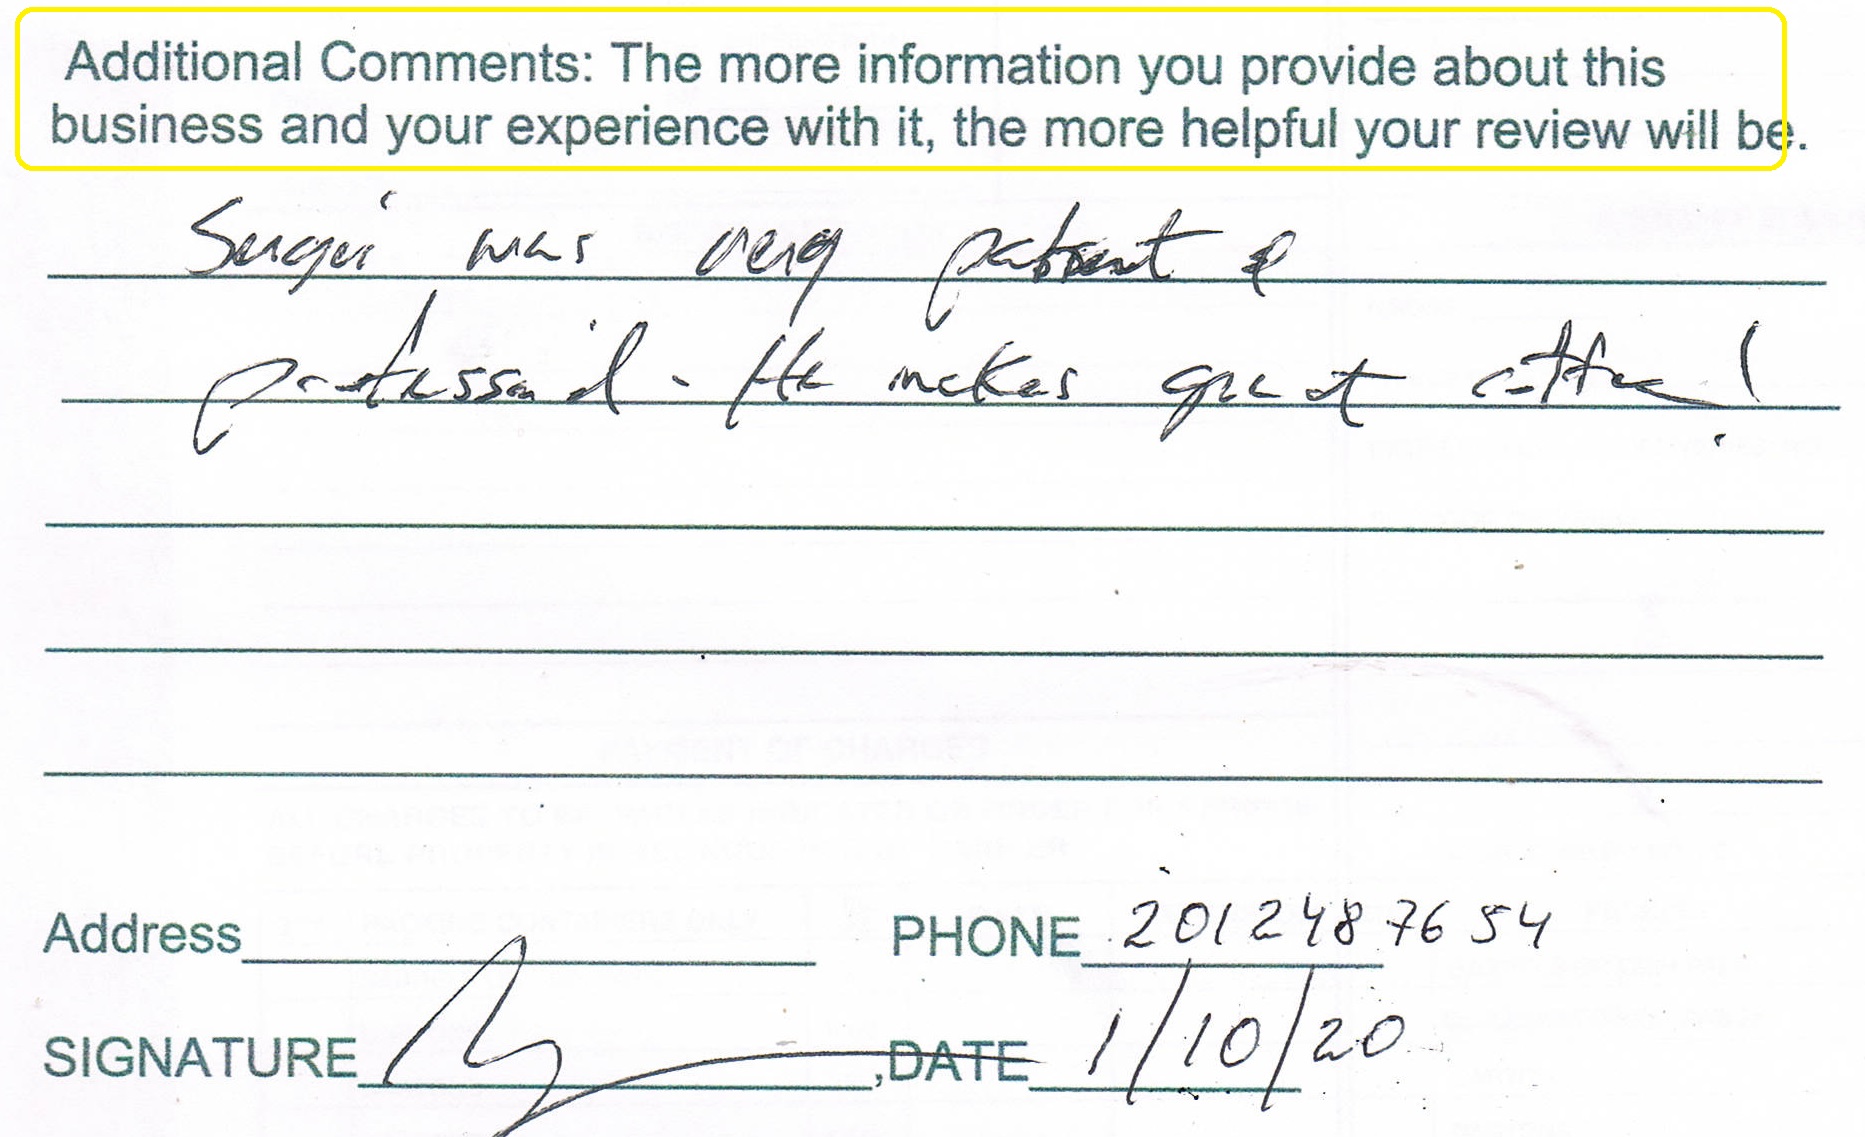 Additional Comments: The more information you provide about this
business and your experience with it, the more helpful your review will be.
Sergei was very patient &
professional. He makes great coffee!
Address PHONE 2012487654
SIGNATURE ,DATE 1/10/20